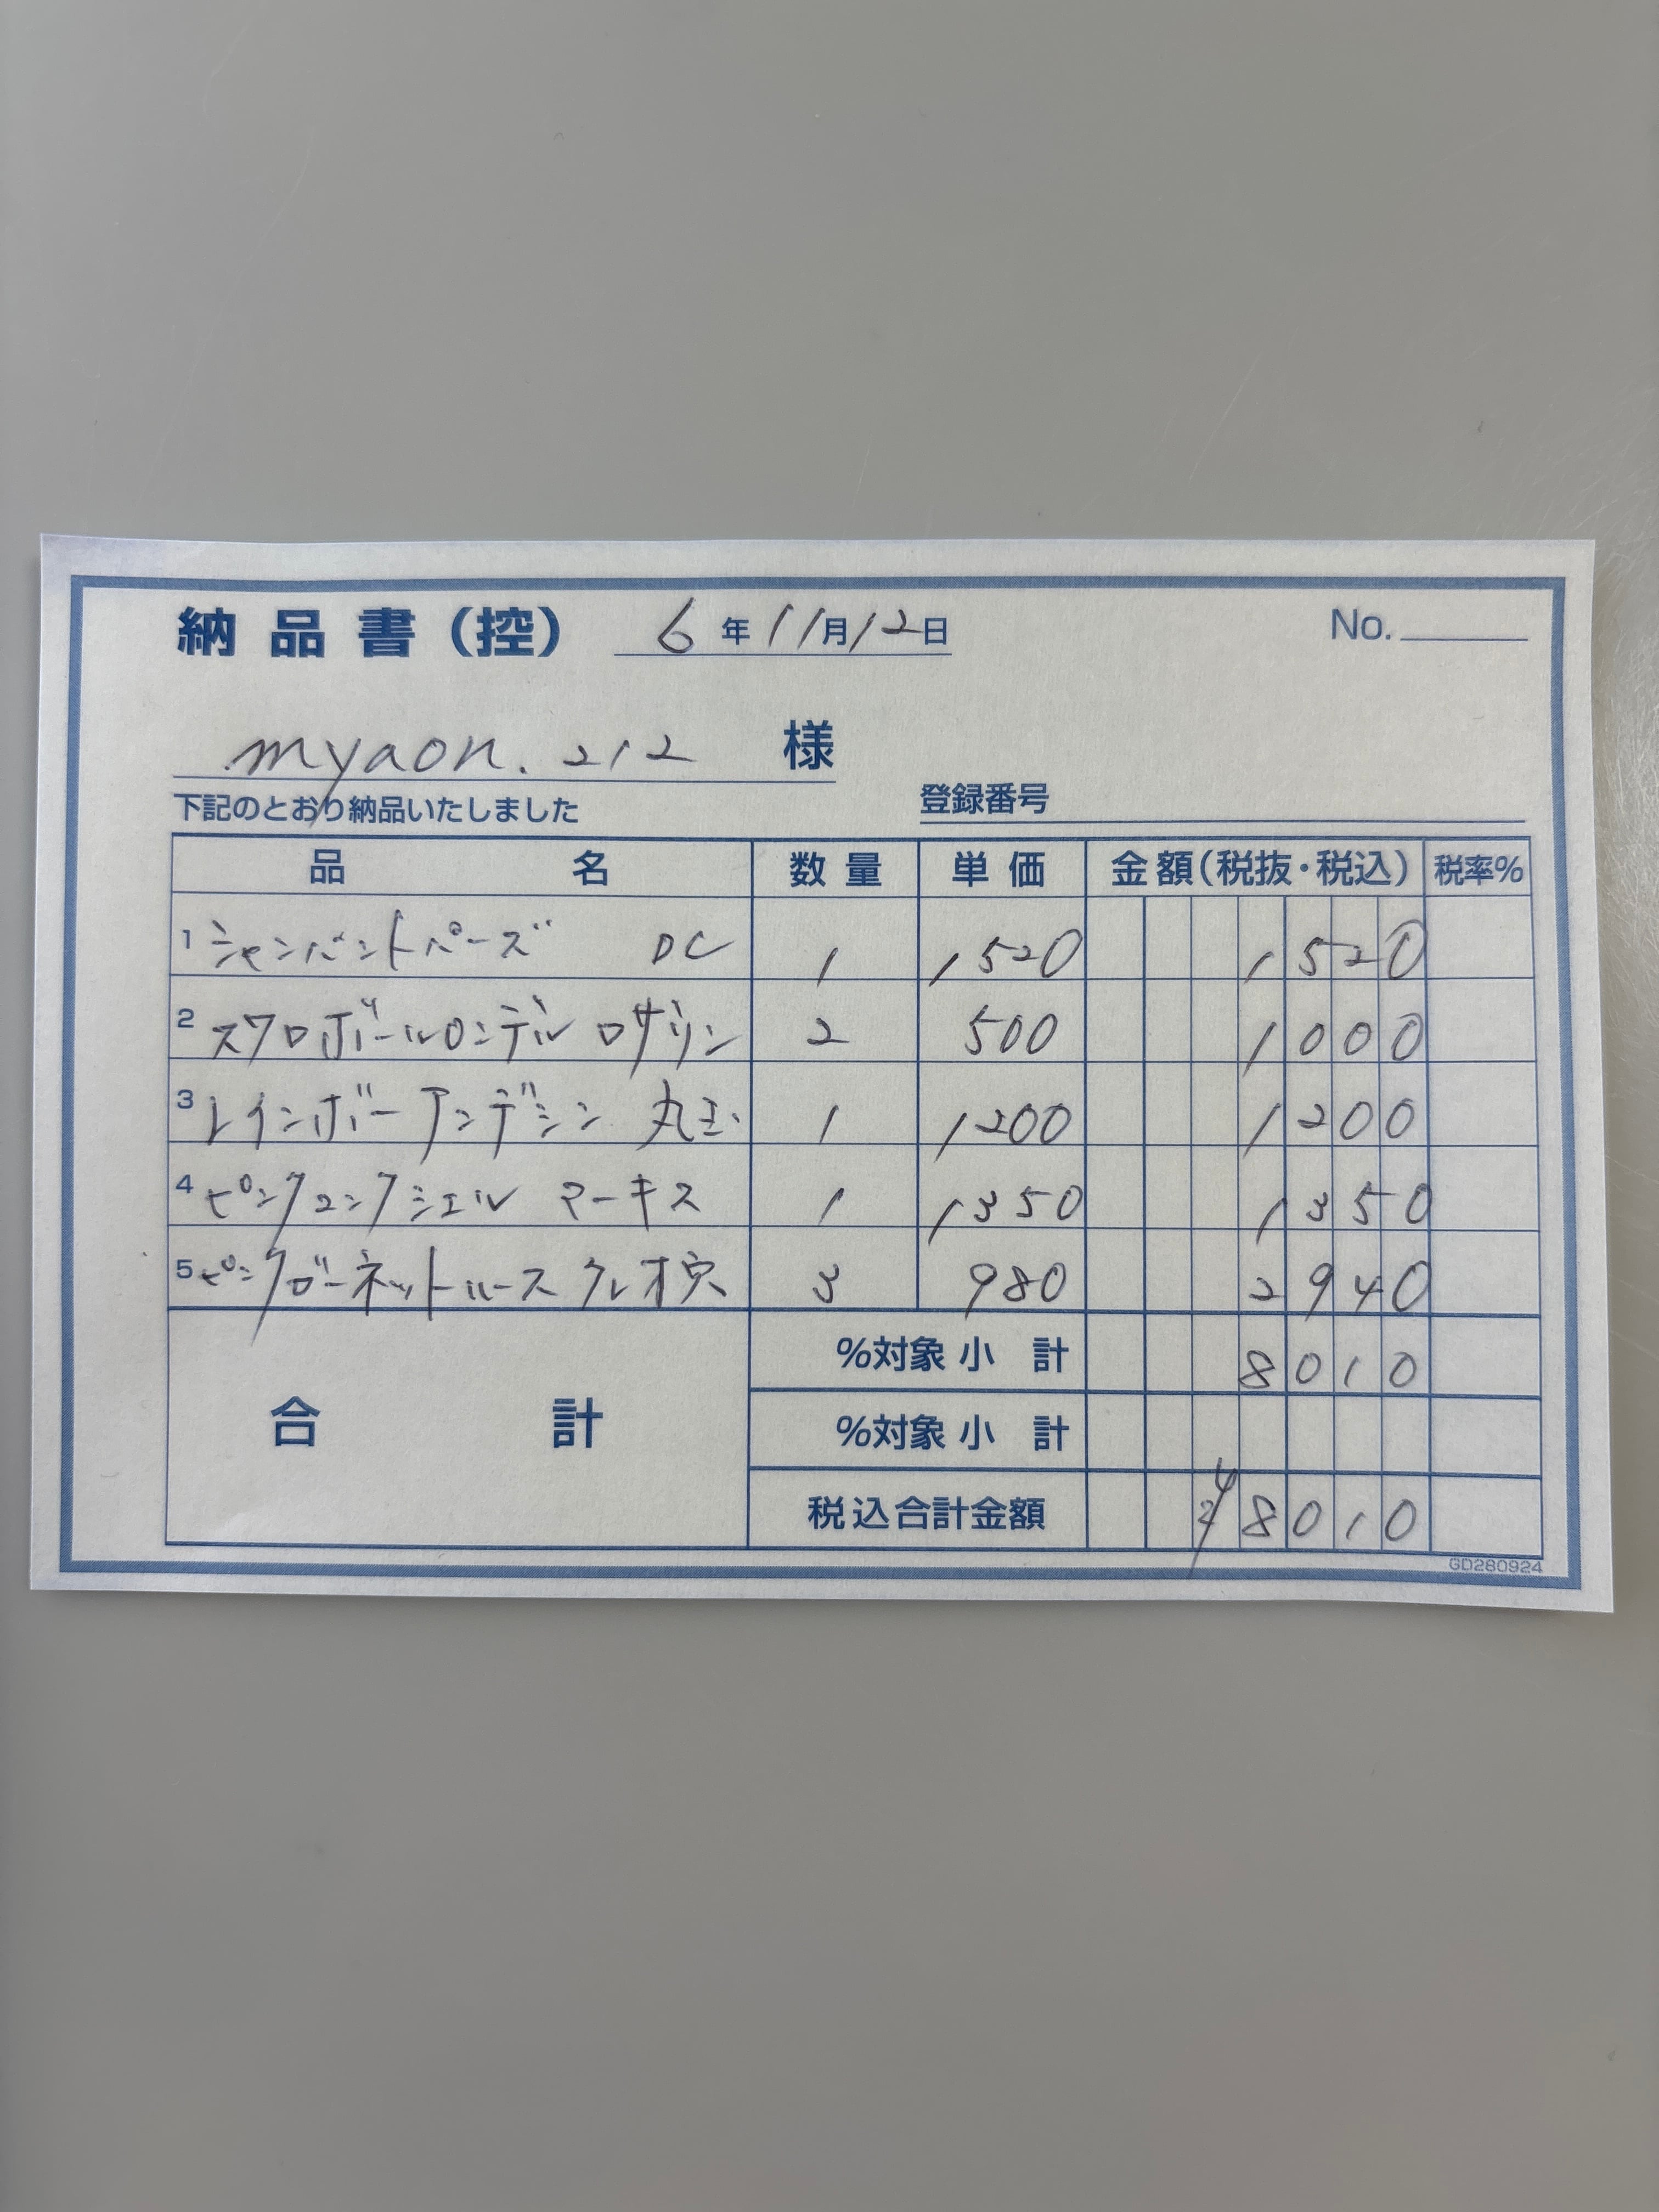 納品書(控) 6年11月12日 No.
myaon.212 様
下記のとおり納品いたしました 登録番号
品名 数量 単価 金額(税抜・税込) 税率%
1 シャンパントパーズ DC 1 1520 1520
2 スクロボールロンデル ロザリン 2 500 1000
3 レインボーアンデシン 丸玉 1 1200 1200
4 ピンクコンクシェル マーキス 1 1350 1350
5 ピンクガーネットルース クレオ穴 3 980 2940
%対象小計 8010
合計 %対象小計
税込合計金額 8010
GD280924